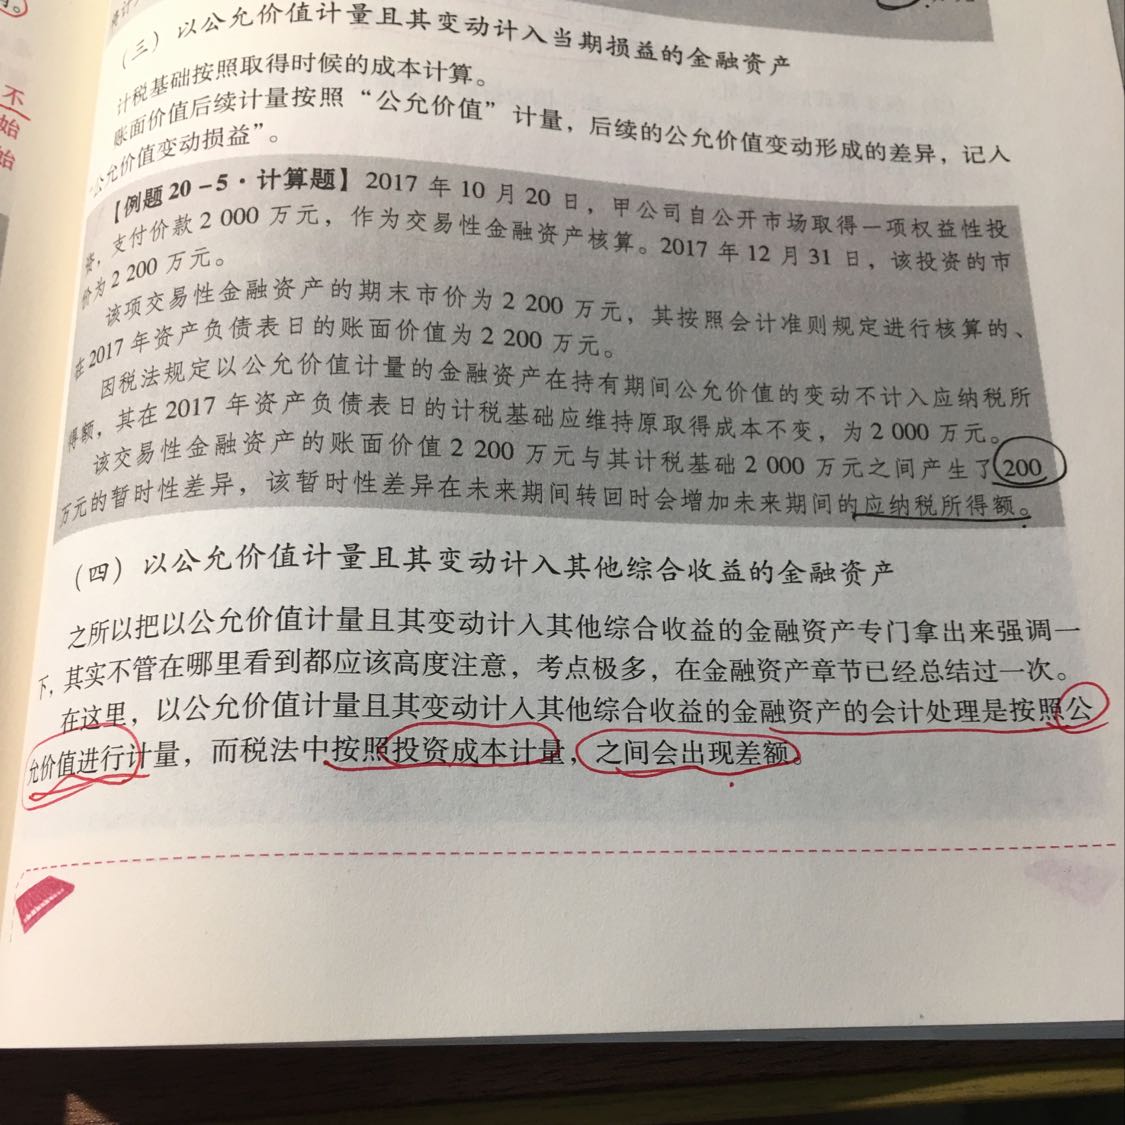 （三）以公允价值计量且其变动计入当期损益的金融资产
计税基础按照取得时候的成本计算。
账面价值后续计量按照“公允价值”计量，后续的公允价值变动形成的差异，记入
“公允价值变动损益”。
【例题20－5·计算题】2017年10月20日，甲公司自公开市场取得一项权益性投
资，支付价款2 000万元，作为交易性金融资产核算。2017年12月31日，该投资的市
价为2 200万元。
该项交易性金融资产的期末市价为2 200万元，其按照会计准则规定进行核算的、
在2017年资产负债表日的账面价值为2 200万元。
因税法规定以公允价值计量的金融资产在持有期间公允价值的变动不计入应纳税所
得额，其在2017年资产负债表日的计税基础应维持原取得成本不变，为2 000万元。
该交易性金融资产的账面价值2 200万元与其计税基础2 000万元之间产生了200
万元的暂时性差异，该暂时性差异在未来期间转回时会增加未来期间的应纳税所得额。
（四）以公允价值计量且其变动计入其他综合收益的金融资产
之所以把以公允价值计量且其变动计入其他综合收益的金融资产专门拿出来强调一
下，其实不管在哪里看到都应该高度注意，考点极多，在金融资产章节已经总结过一次。
在这里，以公允价值计量且其变动计入其他综合收益的金融资产的会计处理是按照公
允价值进行计量，而税法中按照投资成本计量，之间会出现差额。
不
始
始